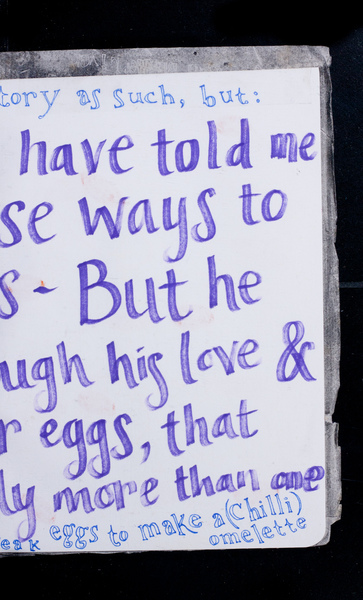 tory as such, but:
have told me
se ways to
s - But he
ugh his love &
r eggs, that
ly more than one
eak eggs to make a (chilli)
omelette